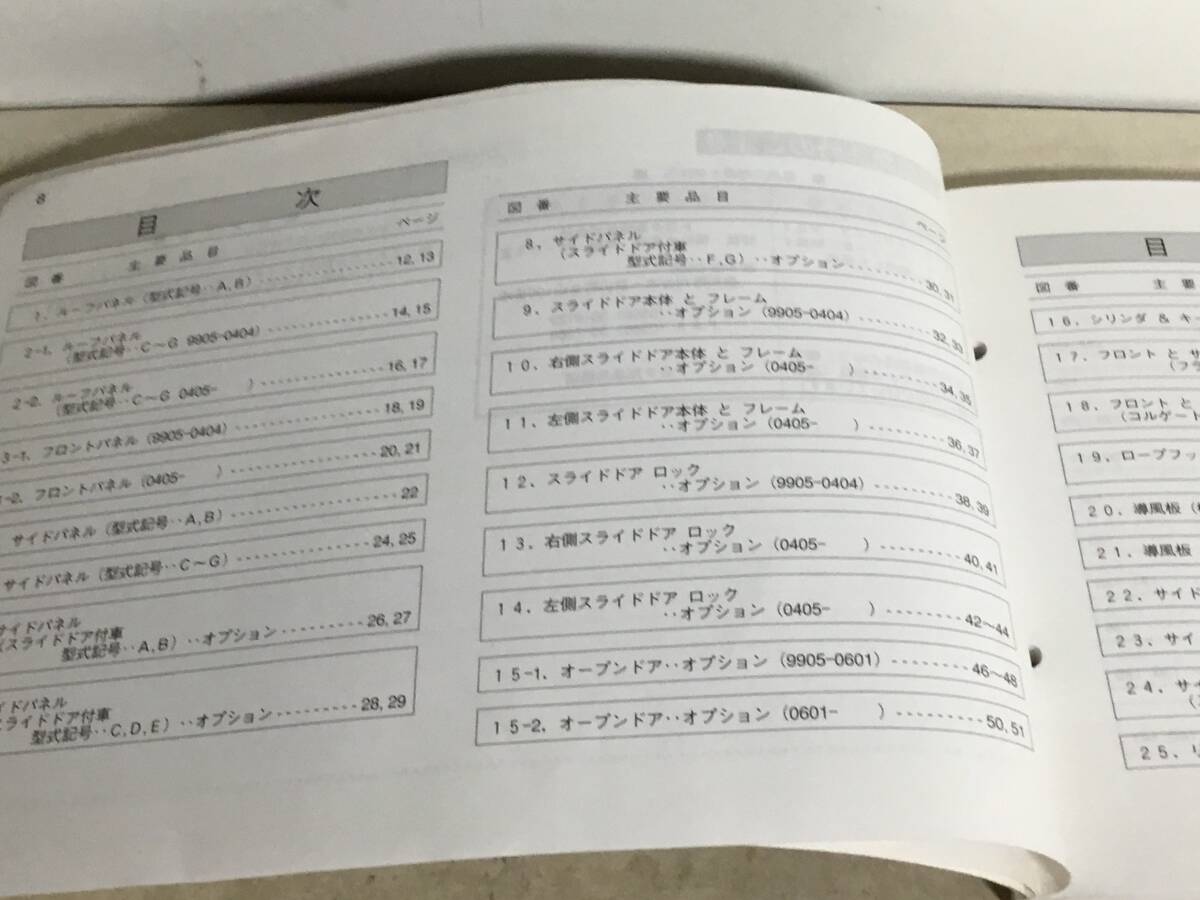 8
目 次
図番 主要品目 ページ
1. ルーフパネル（型式記号‥A,B） 12,13
2-1. ルーフパネル
（型式記号‥C～G 9905-0404） 14,15
2-2. ルーフパネル
（型式記号‥C～G 0405- ） 16,17
3-1. フロントパネル（9905-0404） 18,19
-2. フロントパネル（0405- ） 20,21
サイドパネル（型式記号‥A,B） 22
サイドパネル（型式記号‥C～G） 24,25
サイドパネル
（スライドドア付車
型式記号‥A,B）‥オプション 26,27
イドパネル
スライドドア付車
型式記号‥C,D,E）‥オプション 28,29
図番 主要品目 ページ
8. サイドパネル
（スライドドア付車
型式記号‥F,G）‥オプション 30,31
9. スライドドア本体 と フレーム
‥オプション（9905-0404） 32,33
10. 右側スライドドア本体 と フレーム
‥オプション（0405- ） 34,35
11. 左側スライドドア本体 と フレーム
‥オプション（0405- ） 36,37
12. スライドドア ロック
‥オプション（9905-0404） 38,39
13. 右側スライドドア ロック
‥オプション（0405- ） 40,41
14. 左側スライドドア ロック
‥オプション（0405- ） 42～44
15-1. オープンドア‥オプション（9905-0601） 46～48
15-2. オープンドア‥オプション（0601- ） 50,51
目
図番 主要
16. シリンダ & キー
17. フロント と サ
（フラ
18. フロント と
（コルゲート
19. ロープフッ
20. 導風板（
21. 導風板
22. サイド
23. サイ
24. サイ
25. リ